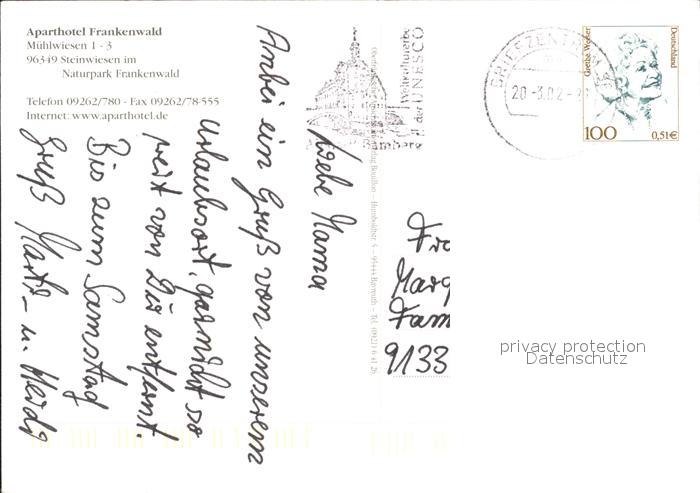 Aparthotel Frankenwald
Mühlwiesen 1 - 3
96349 Steinwiesen im
Naturpark Frankenwald
Telefon 09262/780 - Fax 09262/78-555
Internet: www.aparthotel.de
Liebe Mama
Anbei ein Gruß von unserem
Urlaubsort, garnicht so
weit von Dir entfernt.
Bis zum Samstag
Gruß u. Heidi
Weltkulturerbe
der UNESCO
Bamberg
Bouillon - Humboldtstr. 4 - 95444 Bayreuth - Tel. (0921) 6 41 26
BRIEFZENTRUM
20-3.02-
Grethe Weiser
Deutschland
100
0,51€
Fra
Marg
Fam
9133
privacy protection
Datenschutz